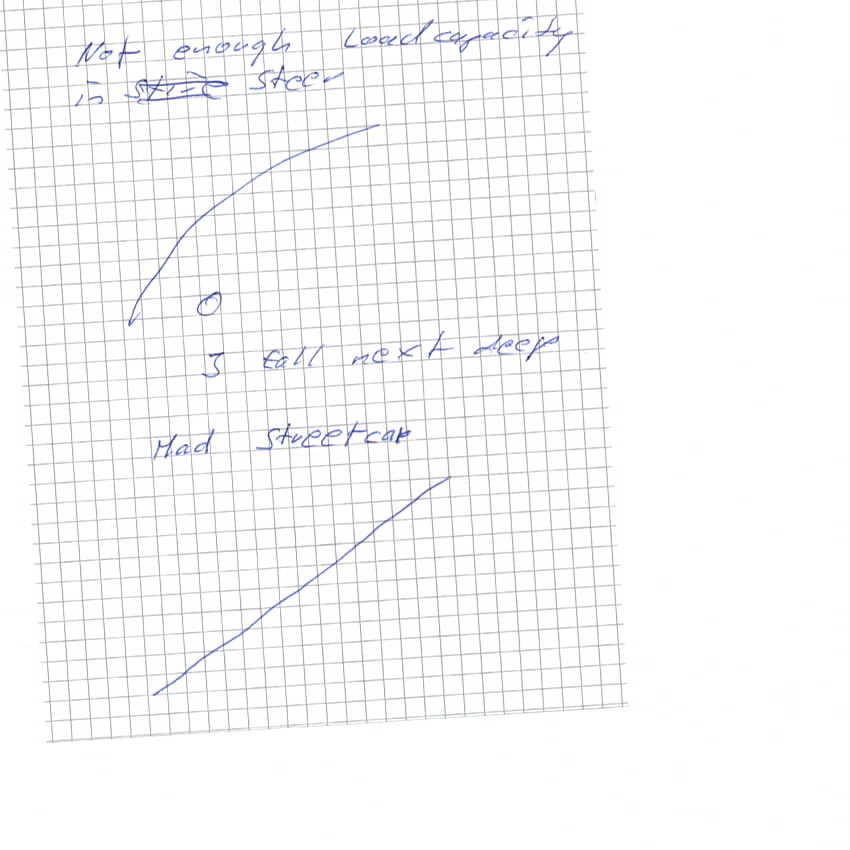 Not enough Loadcapacity
in steer
O
3 fall next deep
Had streetcar